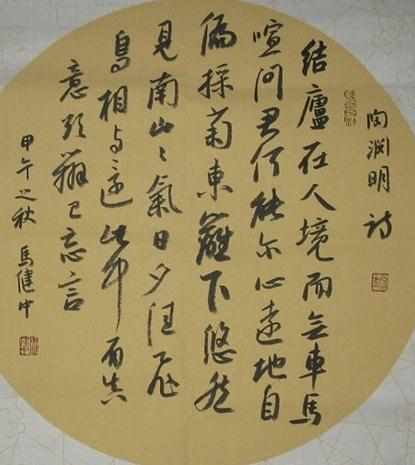 陶渊明詩
結廬在人境而無車馬
喧问君何能尔心遠地自
偏採菊東籬下悠然
見南山〻氣日夕佳飛
鳥相与還此中有真
意欲辨已忘言
甲午之秋 馬健中